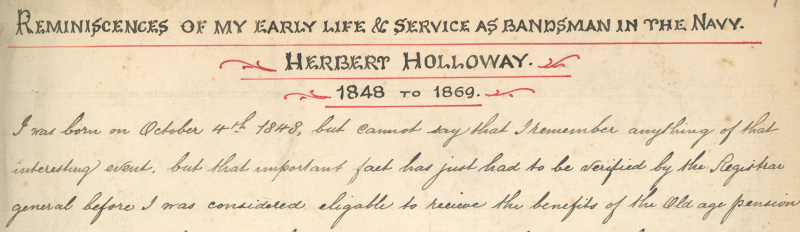 REMINISCENCES OF MY EARLY LIFE & SERVICE AS BANDSMAN IN THE NAVY.
HERBERT HOLLOWAY.
1848 TO 1869.
I was born on October 4th 1848, but cannot say that I remember anything of that
interesting event. but that important fact has just had to be verified by the Registrar
general before I was considered eligable to recieve the benefits of the Old age pension